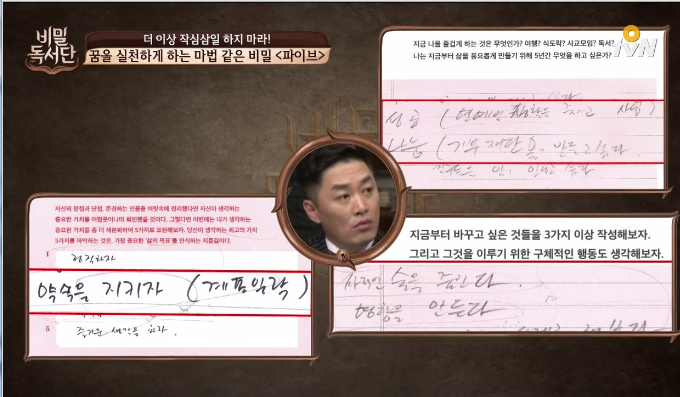 비밀
독서단
더 이상 작심삼일 하지 마라!
꿈을 실천하게 하는 마법 같은 비밀 <파이브>
tvN
지금 나를 즐겁게 하는 것은 무엇인가? 여행? 식도락? 사교모임? 독서?
나는 지금부터 삶을 풍요롭게 만들기 위해 5년간 무엇을 하고 싶은가?
성공 (연예인
나눔 (기부재단을 만들고싶다.
자신의 장점과 단점, 존경하는 인물을 머릿속에 정리했다면 자신이 생각하는
중요한 가치를 어렴풋이나마 확인했을 것이다. 그렇다면 이번에는 내가 생각하는
중요한 가치를 좀 더 세분화하여 5가지로 표현해보자. 당신이 생각하는 최고의 가치
5가지를 파악하는 것은, 가장 중요한 '삶의 목표'를 인식하는 지름길이다.
1 정직하자
약속을 지키자 (계프일락)
5 즐거운 생각을 하자.
지금부터 바꾸고 싶은 것들을 3가지 이상 작성해보자.
그리고 그것을 이루기 위한 구체적인 행동도 생각해보자.
술을 줄인다.
명함을 만든다